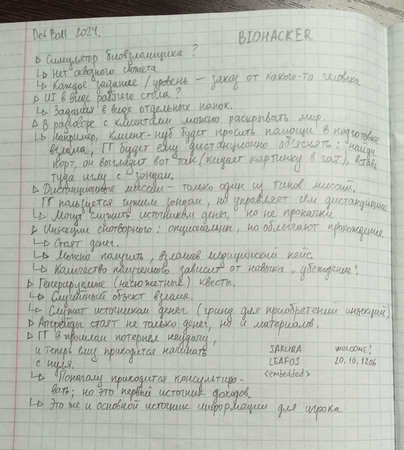 DevBall 2024.
BIOHACKER
▷ Симулятор биовзломщика ?
↳ Нет сквозного сюжета
↳ Каждое задание / уровень — заказ от какого-то человека
▷ UI в виде рабочего стола ?
↳ Задания в виде отдельных папок.
▷ В разговоре с клиентами можно раскрывать мир.
↳ Например, клиент-нуб будет просить помощи в подготовке
взлома, ГГ будет ему дистанционно объяснять: найди
порт, он выглядит вот так (кидает картинку в чат), вставь
туда иглу с зондом.
▷ Дистанционные миссии — только один из типов миссий.
ГГ пользуется чужим зондом, но управляет им дистанционно
↳ Могут служить источником денег, но не прокачки
▷ Инъекции снотворного: опциональны, но облегчают прохождение
↳ Стоят денег.
↳ Можно получить, взломав медицинский кейс.
↳ Количество полученного зависит от навыка „убеждение".
▷ Генерируемые (несюжетные) квесты.
↳ Случайный объект взлома.
↳ Служат источником денег (гринд для приобретения инъекций)
▷ Апгрейды стоят не только денег, но и материалов.
▷ ГГ в прошлом потерпел неудачу,
и теперь ему приходится начинать
с нуля.
↳ Поначалу приходится консультиро-
вать; но это первый источник доходов.
↳ Это же и основной источник информации для игрока
SAKURA welcome!
LEAFOS 20.10.1206
<embedded>